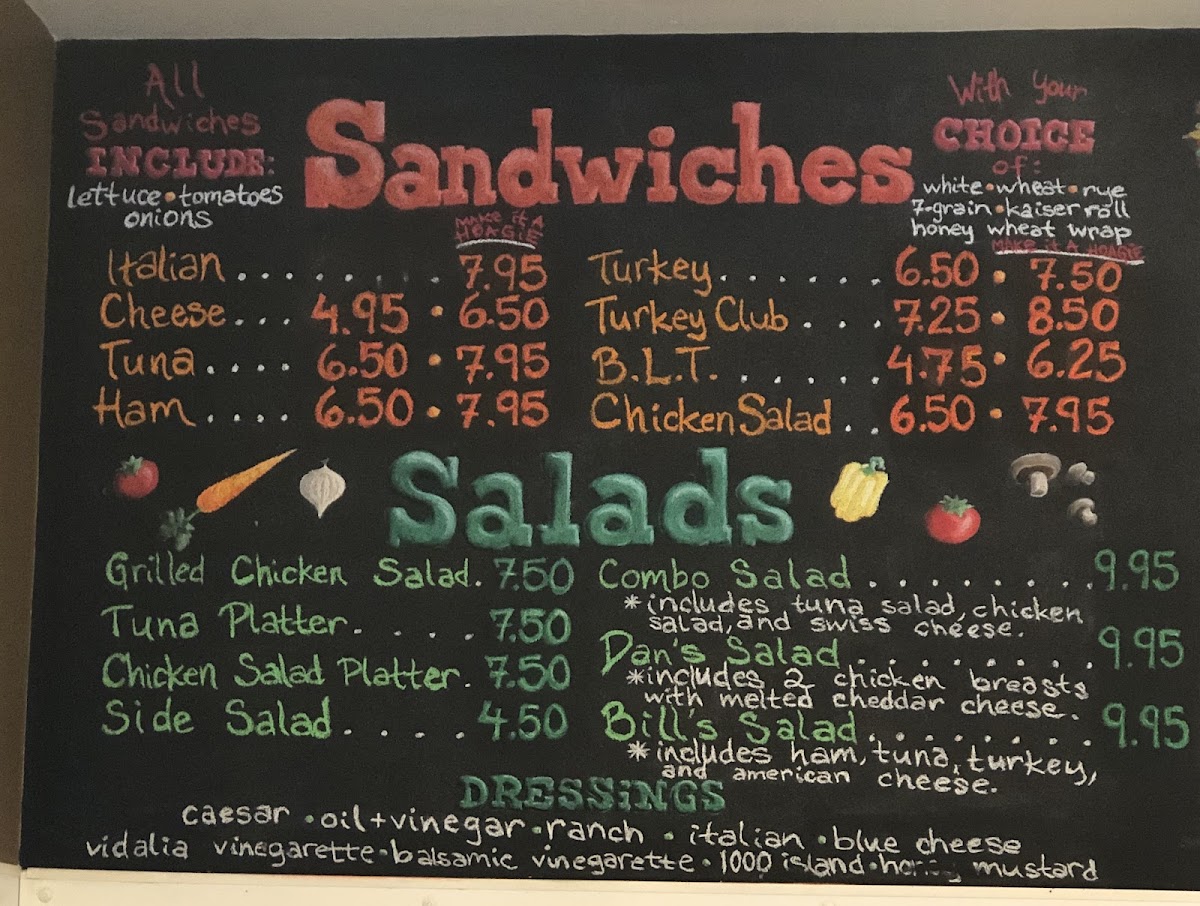 All
Sandwiches
INCLUDE:
lettuce • tomatoes
onions
Sandwiches
With your
CHOICE
of:
white • wheat • rye
7-grain • kaiser roll
honey wheat wrap
MAKE IT A
HOAGIE
Italian . . . . . . . . . 7.95
Cheese . . . 4.95 • 6.50
Tuna . . . . 6.50 • 7.95
Ham . . . . 6.50 • 7.95
MAKE IT A HOAGIE
Turkey . . . . . . 6.50 • 7.50
Turkey Club . . . . 7.25 • 8.50
B.L.T. . . . . . . 4.75 • 6.25
Chicken Salad . . 6.50 • 7.95
Salads
Grilled Chicken Salad . 7.50
Tuna Platter . . . . 7.50
Chicken Salad Platter . 7.50
Side Salad . . . . 4.50
Combo Salad . . . . . . . . 9.95
*includes tuna salad, chicken
salad, and swiss cheese.
Dan's Salad . . . . . . . . . 9.95
*includes 2 chicken breasts
with melted cheddar cheese.
Bill's Salad . . . . . . . . 9.95
*includes ham, tuna, turkey,
and american cheese.
DRESSiNGS
caesar • oil + vinegar • ranch • italian • blue cheese
vidalia vinegarette • balsamic vinegarette • 1000 island • honey mustard